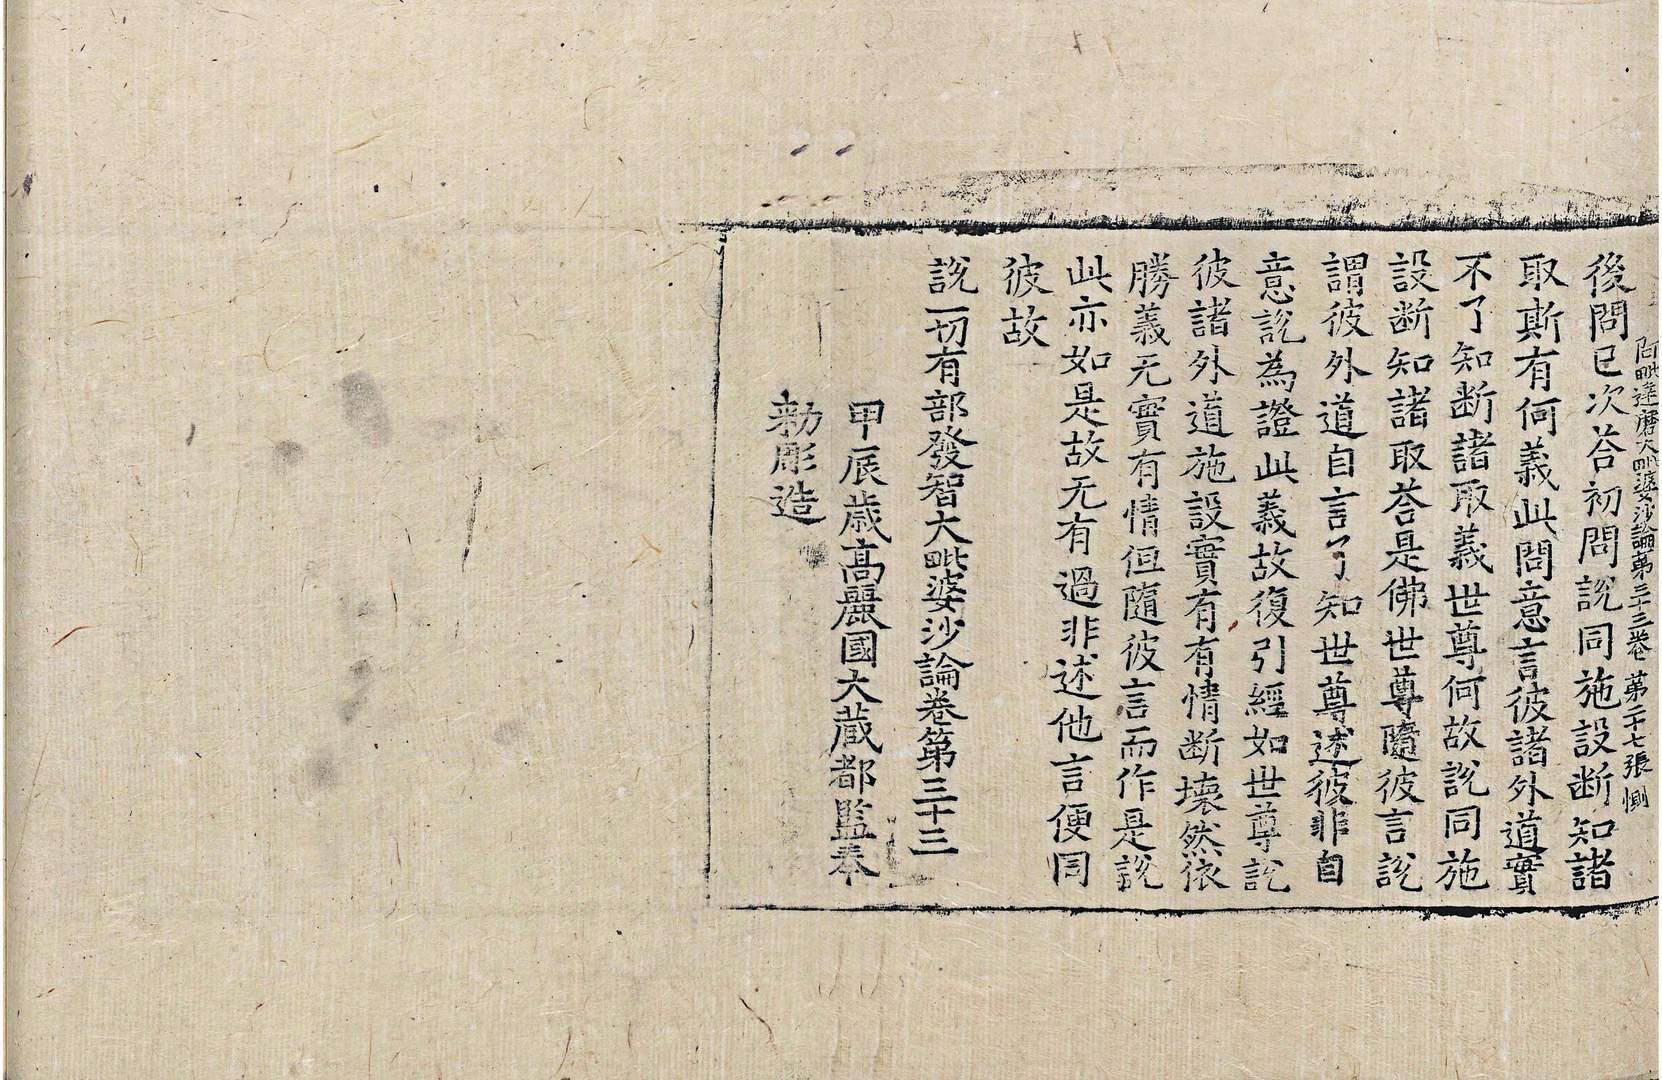 阿毗達磨大毗婆沙論第三十三卷 第二十七張 惻
後問已次荅初問說同施設断知諸
取斯有何義此問意言彼諸外道實
不了知断諸取義世尊何故說同施
設断知諸取荅是佛世尊隨彼言說
謂彼外道自言了知世尊述彼非自
意說為證此義故復引經如世尊說
彼諸外道施設實有有情断壞然依
勝義无實有情但隨彼言而作是說
此亦如是故无有過非述他言便同
彼故
說一切有部發智大毗婆沙論卷第三十三
甲辰歲高麗國大藏都監奉
勑彫造